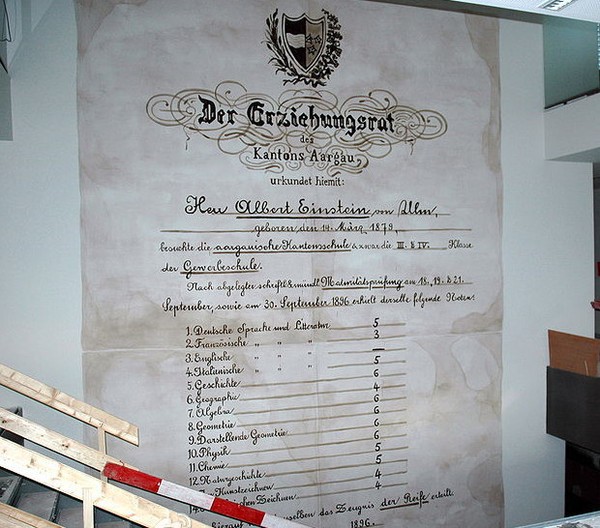 Der Erziehungsrat
des
Kantons Aargau
urkundet hiemit:
Herr Albert Einstein von Ulm,
geboren den 14. März 1879,
besuchte die aargauische Kantonsschule & zwar die III. & IV. Klasse
der Gewerbeschule.
Nach abgelegter schriftl. & mündl. Maturitätsprüfung am 18., 19. & 21.
September, sowie am 30. September 1896 erhielt derselbe folgende Noten:
1. Deutsche Sprache und Litteratur 5
2. Französische " " " 3
3. Englische " " " —
4. Italienische " " " 5
5. Geschichte 6
6. Geographie 4
7. Algebra 6
8. Geometrie 6
9. Darstellende Geometrie 6
10. Physik 6
11. Chemie 5
12. Naturgeschichte 5
Kunstzeichnen 4
14. Zeichnen 4
Hierauf selben das Zeugnis der Reife erteilt.
1896.